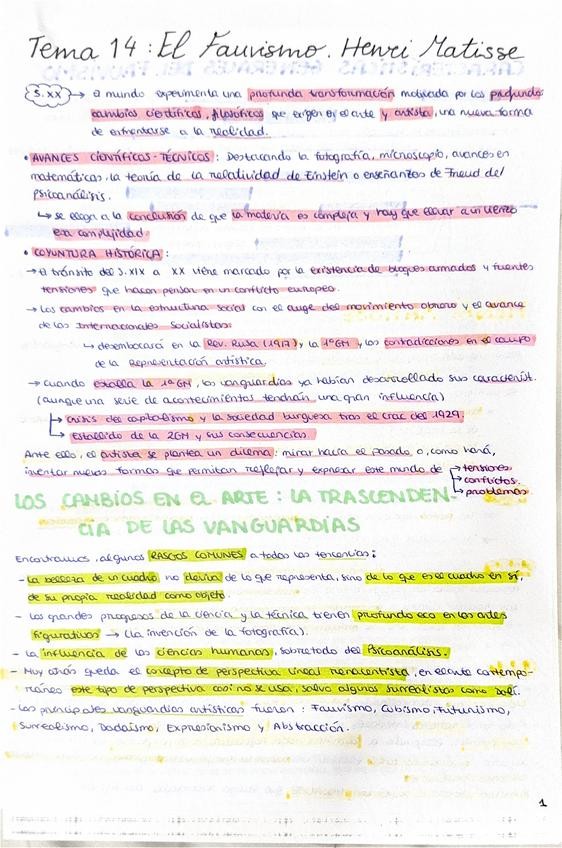 Tema 14: El Fauvismo. Henri Matisse
S. XX → el mundo experimenta una profunda transformación motivada por los profundos
cambios científicos, filosóficos que exigen en el arte y artista, una nueva forma
de enfrentarse a la realidad.
• AVANCES CIENTÍFICOS-TÉCNICOS: Destacando la fotografía, microscopio, avances en
matemáticas, la teoría de la relatividad de Einstein o enseñanzas de Freud del
Psicoanálisis.
↳ se llega a la conclusión de que la materia es compleja y hay que llevar a un lienzo
esa complejidad.
• COYUNTURA HISTÓRICA:
→ el tránsito del S. XIX a XX viene marcado por la existencia de bloques armados y fuertes
tensiones que hacen pensar en un conflicto europeo.
→ Los cambios en la estructura social con el auge del movimiento obrero y el avance
de las Internacionales Socialistas:
↳ desembocará en la Rev. Rusa (1917) y la 1ª GM y las contradicciones en el campo
de la Representación artística.
→ cuando estalla la 1ª GM, las vanguardias ya habían desarrollado sus característ.
(aunque una serie de acontecimientos tendrán una gran influencia)
→ crisis del capitalismo y la sociedad burguesa tras el crac del 1929.
→ Estallido de la 2GM y sus consecuencias.
Ante ello, el artista se plantea un dilema: mirar hacia el pasado o, como hará,
inventar nuevas formas que permitan reflejar y expresar este mundo de → tensiones
→ conflictos.
→ problemas
LOS CAMBIOS EN EL ARTE: LA TRASCENDEN-
CIA DE LAS VANGUARDIAS
Encontramos, algunos RASGOS COMUNES a todas las tendencias:
- La belleza de un cuadro no deriva de lo que representa, sino de lo que es el cuadro en sí,
de su propia realidad como objeto.
- Los grandes progresos de la ciencia y la técnica tienen profundo eco en las artes
figurativas → (la invención de la fotografía).
- La influencia de las ciencias humanas, sobretodo del Psicoanálisis.
- Muy atrás queda el concepto de perspectiva lineal renacentista, en el arte contempo-
ráneo este tipo de perspectiva casi no se usa, salvo algunos surrealistas como Dalí.
- Las principales vanguardias artísticas fueron: Fauvismo, Cubismo, Futurismo,
Surrealismo, Dadaísmo, Expresionismo y Abstracción.
1